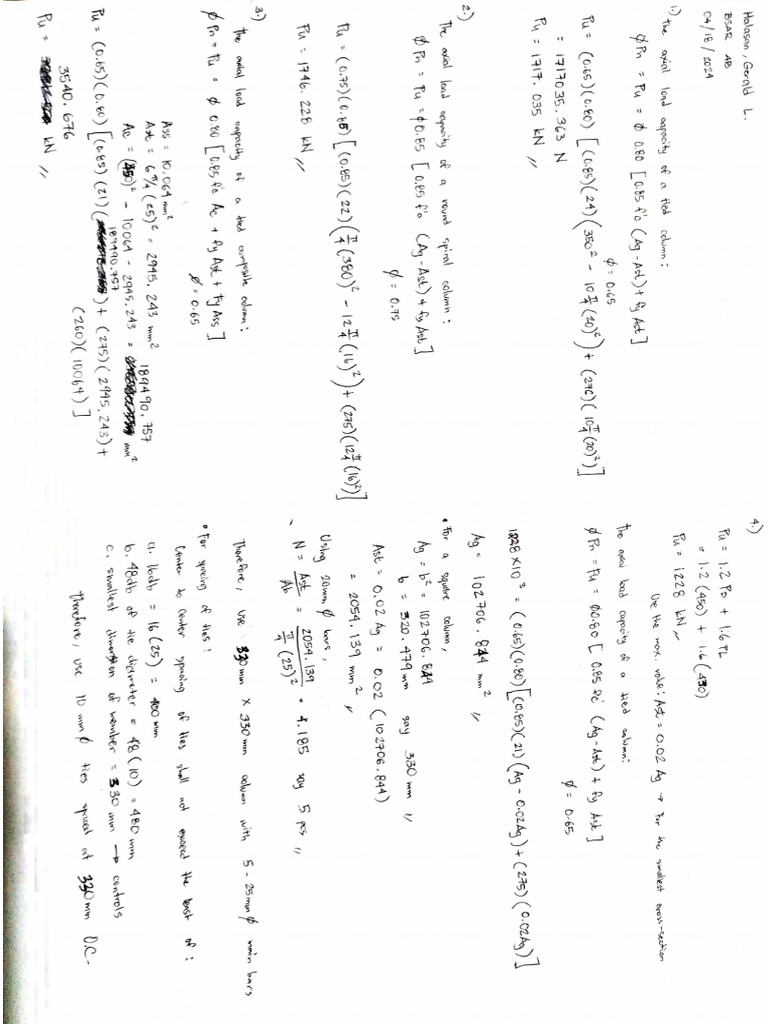 Halasan, Gerald L.
BSAR 4B
04/18/2024
1.) The axial load capacity of a tied column:
φPn = Pu = φ 0.80 [0.85 f'c (Ag-Ast) + fy Ast]
φ = 0.65
Pu = (0.65)(0.80) [(0.85)(24)(350² - 10 π/4 (20)²) + (276)(10 π/4 (20)²)]
= 1717035.363 N
Pu = 1717.035 kN //
2.) The axial load capacity of a round spiral column:
φPn = Pu = φ 0.85 [0.85 f'c (Ag-Ast) + fy Ast]
φ = 0.75
Pu = (0.75)(0.85) [(0.85)(22)(π/4 (380)² - 12 π/4 (16)²) + (275)(12 π/4 (16)²)]
Pu = 1746.228 kN //
3.) The axial load capacity of a tied composite column:
φPn = Pu = φ 0.80 [0.85 f'c Ac + fy Ast + Fy Ass]
φ = 0.65
Ass = 10.064 mm²
Ast = 6 π/4 (25)² = 2945.243 mm²
Ac = (450)² - 10064 - 2945.243 = 189490.757 mm²
Pu = (0.65)(0.80) [(0.85)(21)(189490.757) + (275)(2945.243) +
(260)(10064)]
Pu = 3540.676 kN //
4.) Pu = 1.2 PD + 1.6 PL
= 1.2(450) + 1.6(430)
Pu = 1228 kN //
Use the max. value: Ast = 0.02 Ag → For the smallest cross-section
The axial load capacity of a tied column:
φPn = Pu = φ0.80 [0.85 f'c (Ag-Ast) + fy Ast]
φ = 0.65
1228 x 10³ = (0.65)(0.80) [(0.85)(21)(Ag - 0.02Ag) + (275)(0.02Ag)]
Ag = 102706.844 mm² //
• For a square column,
Ag = b² = 102706.844
b = 320.479 mm say 330 mm //
Ast = 0.02 Ag = 0.02 (102706.844)
= 2054.139 mm² //
Using 20mm φ bars,
N = Ast/Ab = 2054.139 / π/4 (25)² = 4.185 say 5 pcs //
Therefore, use 330 mm x 330 mm column with 5 - 25mm φ main bars
• For spacing of ties:
Center to center spacing of ties shall not exceed the least of:
a. 16db = 16(25) = 400 mm
b. 48db of tie diameter = 48(10) = 480 mm
c. smallest dimension of member = 330 mm → controls
Therefore, use 10 mm φ ties spaced at 330 mm O.C.